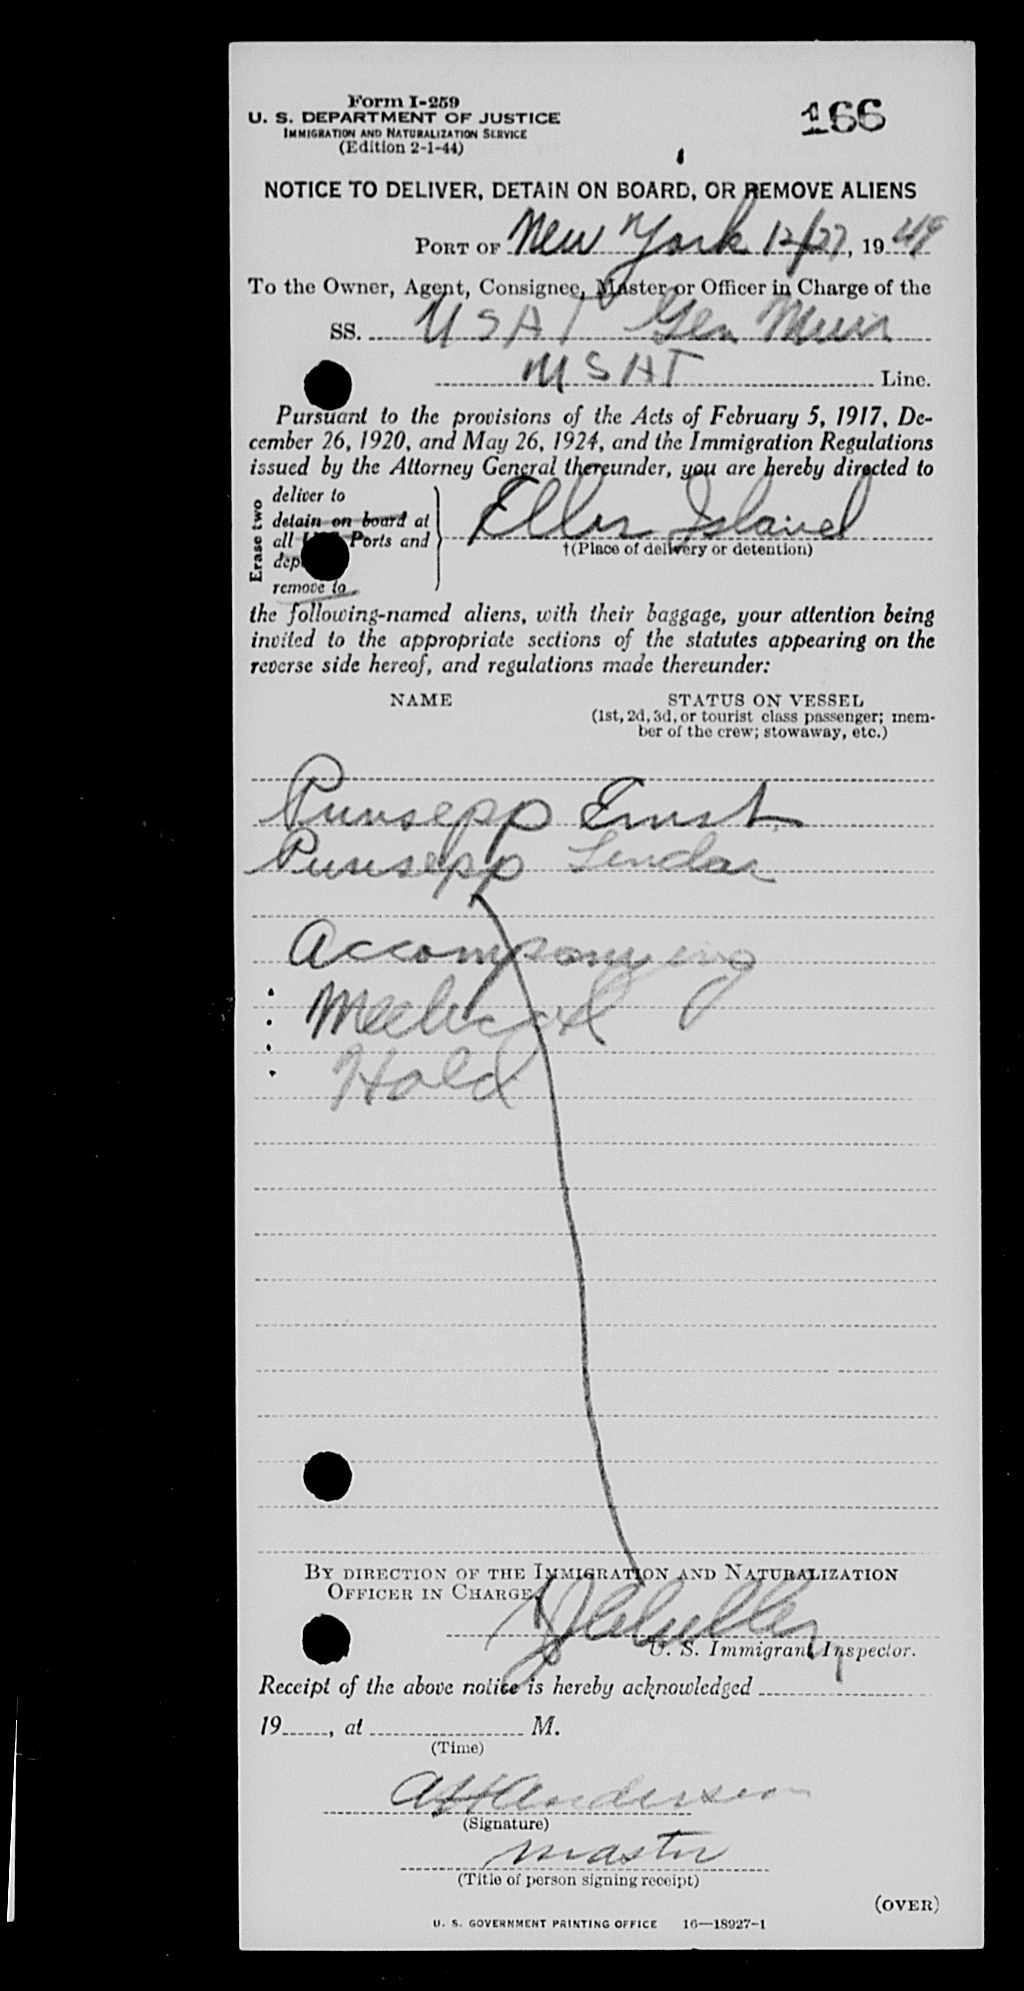 Form I-259
U. S. DEPARTMENT OF JUSTICE
IMMIGRATION AND NATURALIZATION SERVICE
(Edition 2-1-44)
166
NOTICE TO DELIVER, DETAIN ON BOARD, OR REMOVE ALIENS
PORT OF New York 12/27, 19 49
To the Owner, Agent, Consignee, Master or Officer in Charge of the
SS. USAT Gen Muir
USAT Line.
Pursuant to the provisions of the Acts of February 5, 1917, De-
cember 26, 1920, and May 26, 1924, and the Immigration Regulations
issued by the Attorney General thereunder, you are hereby directed to
Erase two
deliver to
detain on board at
all Ports and
remove to
Ellis Island
†(Place of delivery or detention)
the following-named aliens, with their baggage, your attention being
invited to the appropriate sections of the statutes appearing on the
reverse side hereof, and regulations made thereunder:
NAME STATUS ON VESSEL
(1st, 2d, 3d, or tourist class passenger; mem-
ber of the crew; stowaway, etc.)
Punsepp Ernst
Punsepp Lendar
Accompanying
Medical
Hold
BY DIRECTION OF THE IMMIGRATION AND NATURALIZATION
OFFICER IN CHARGE.
U. S. Immigrant Inspector.
Receipt of the above notice is hereby acknowledged
19......, at M.
(Time)
A H Anderson
(Signature)
master
(Title of person signing receipt)
(OVER)
U. S. GOVERNMENT PRINTING OFFICE 16—18927-1